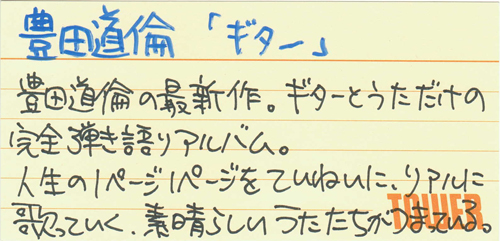 豊田道倫 「ギター」
豊田道倫の最新作。ギターとうただけの
完全弾き語りアルバム。
人生の1ページ1ページをていねいに、リアルに
歌っていく、素晴らしいうたたちがつまっている。
TOWER